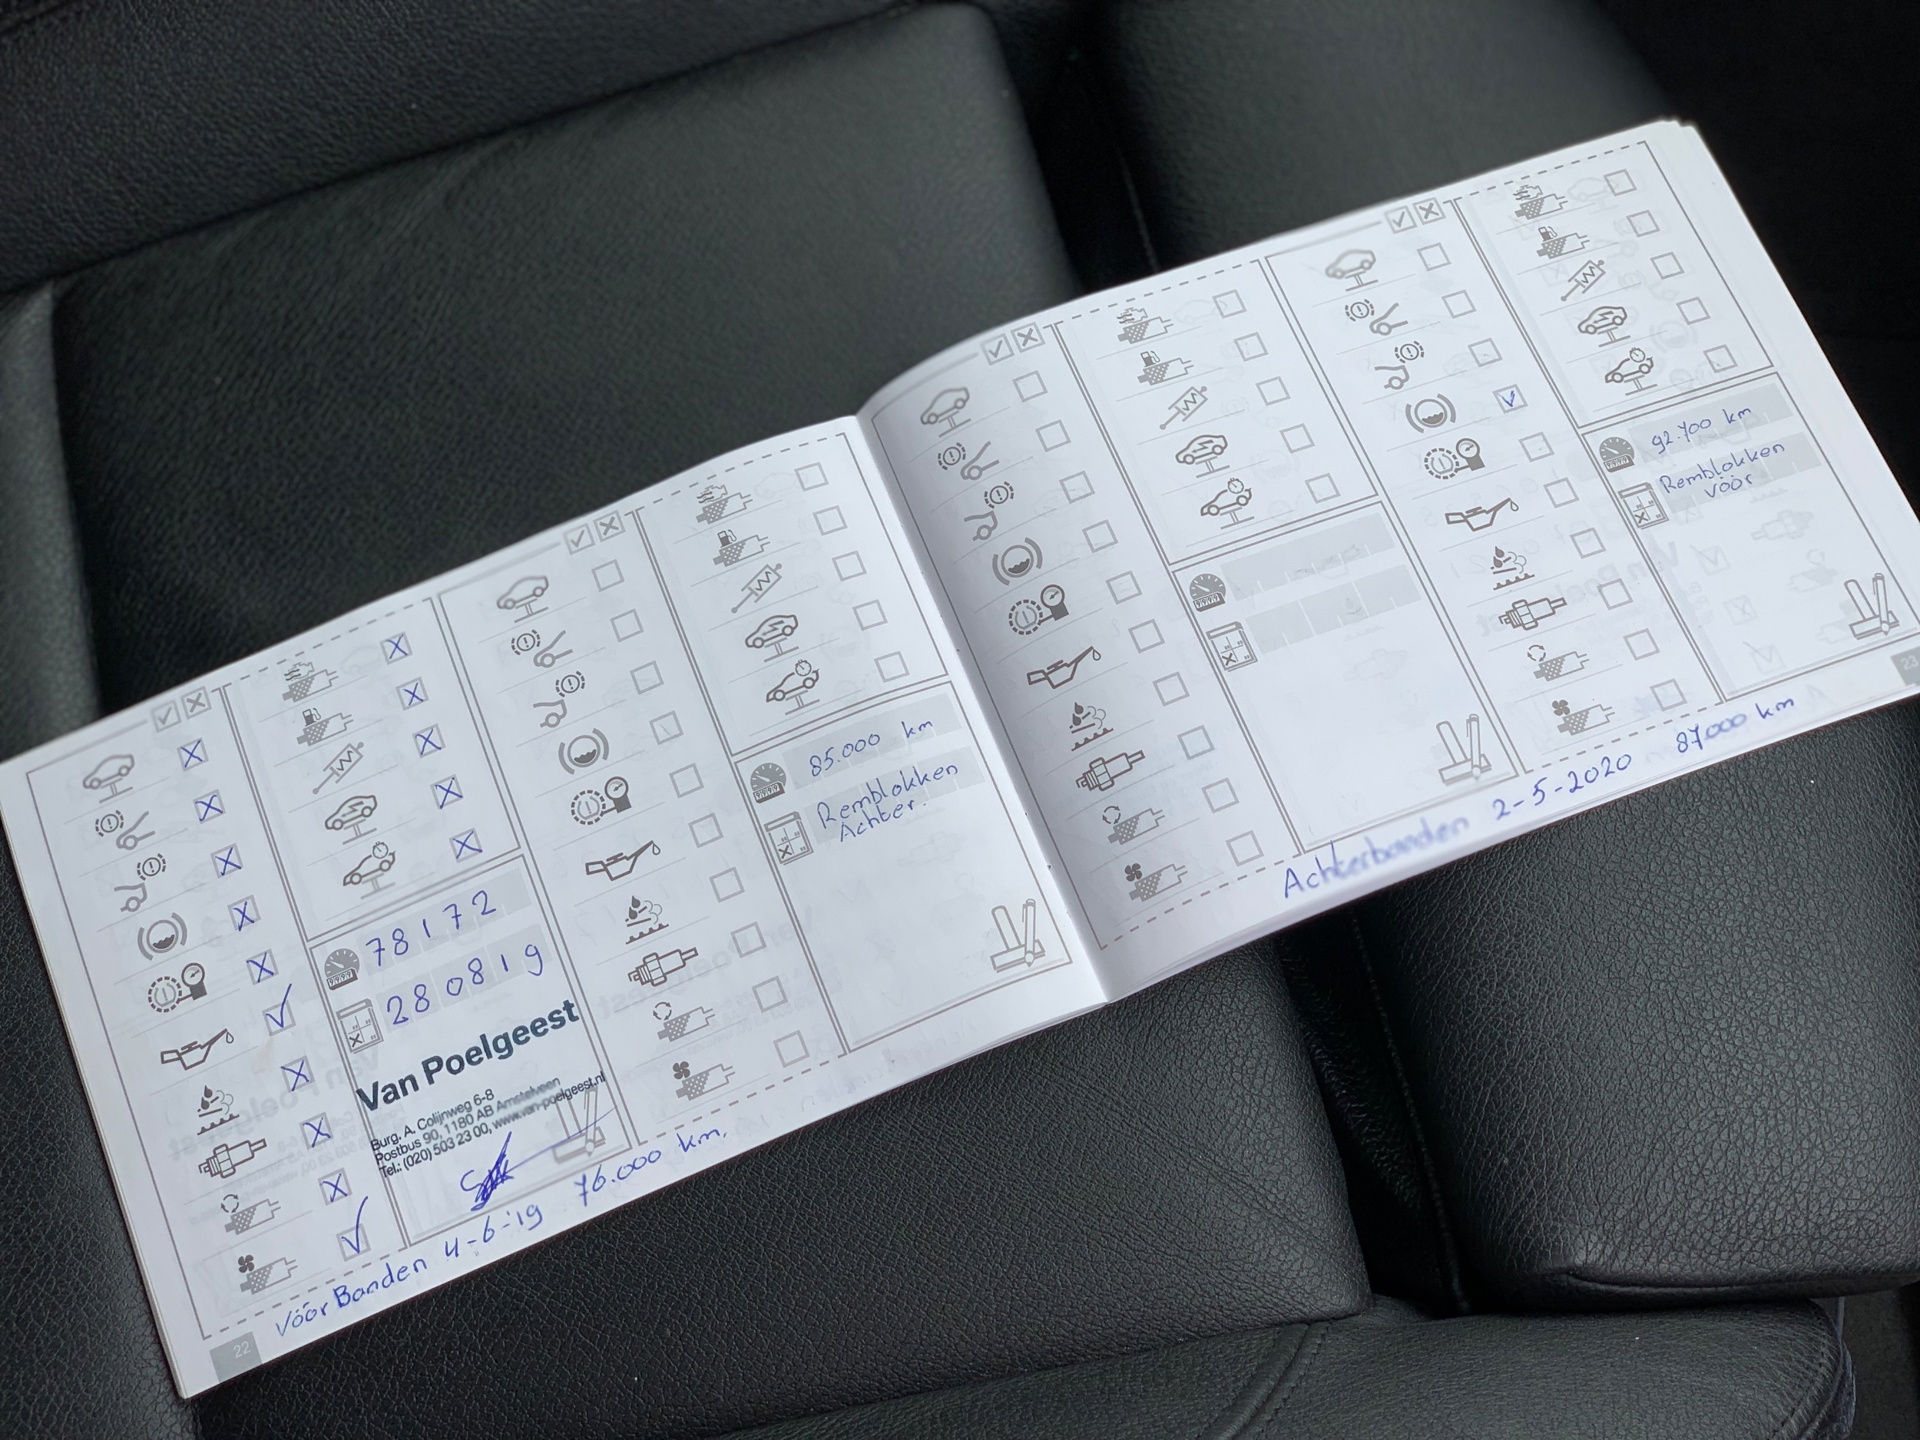 78172
280819
Van Poelgeest
Burg. A. Colijnweg 6-8
Postbus 90, 1180 AB Amstelveen
Tel.: (020) 503 23 00, www.van-poelgeest.nl
Vóór Banden 4-6-'19 76.000 km.
22
85.000 km
Remblokken
Achter.
92.700 km
Remblokken
vóór
Achterbanden 2-5-2020 87.000 km
23